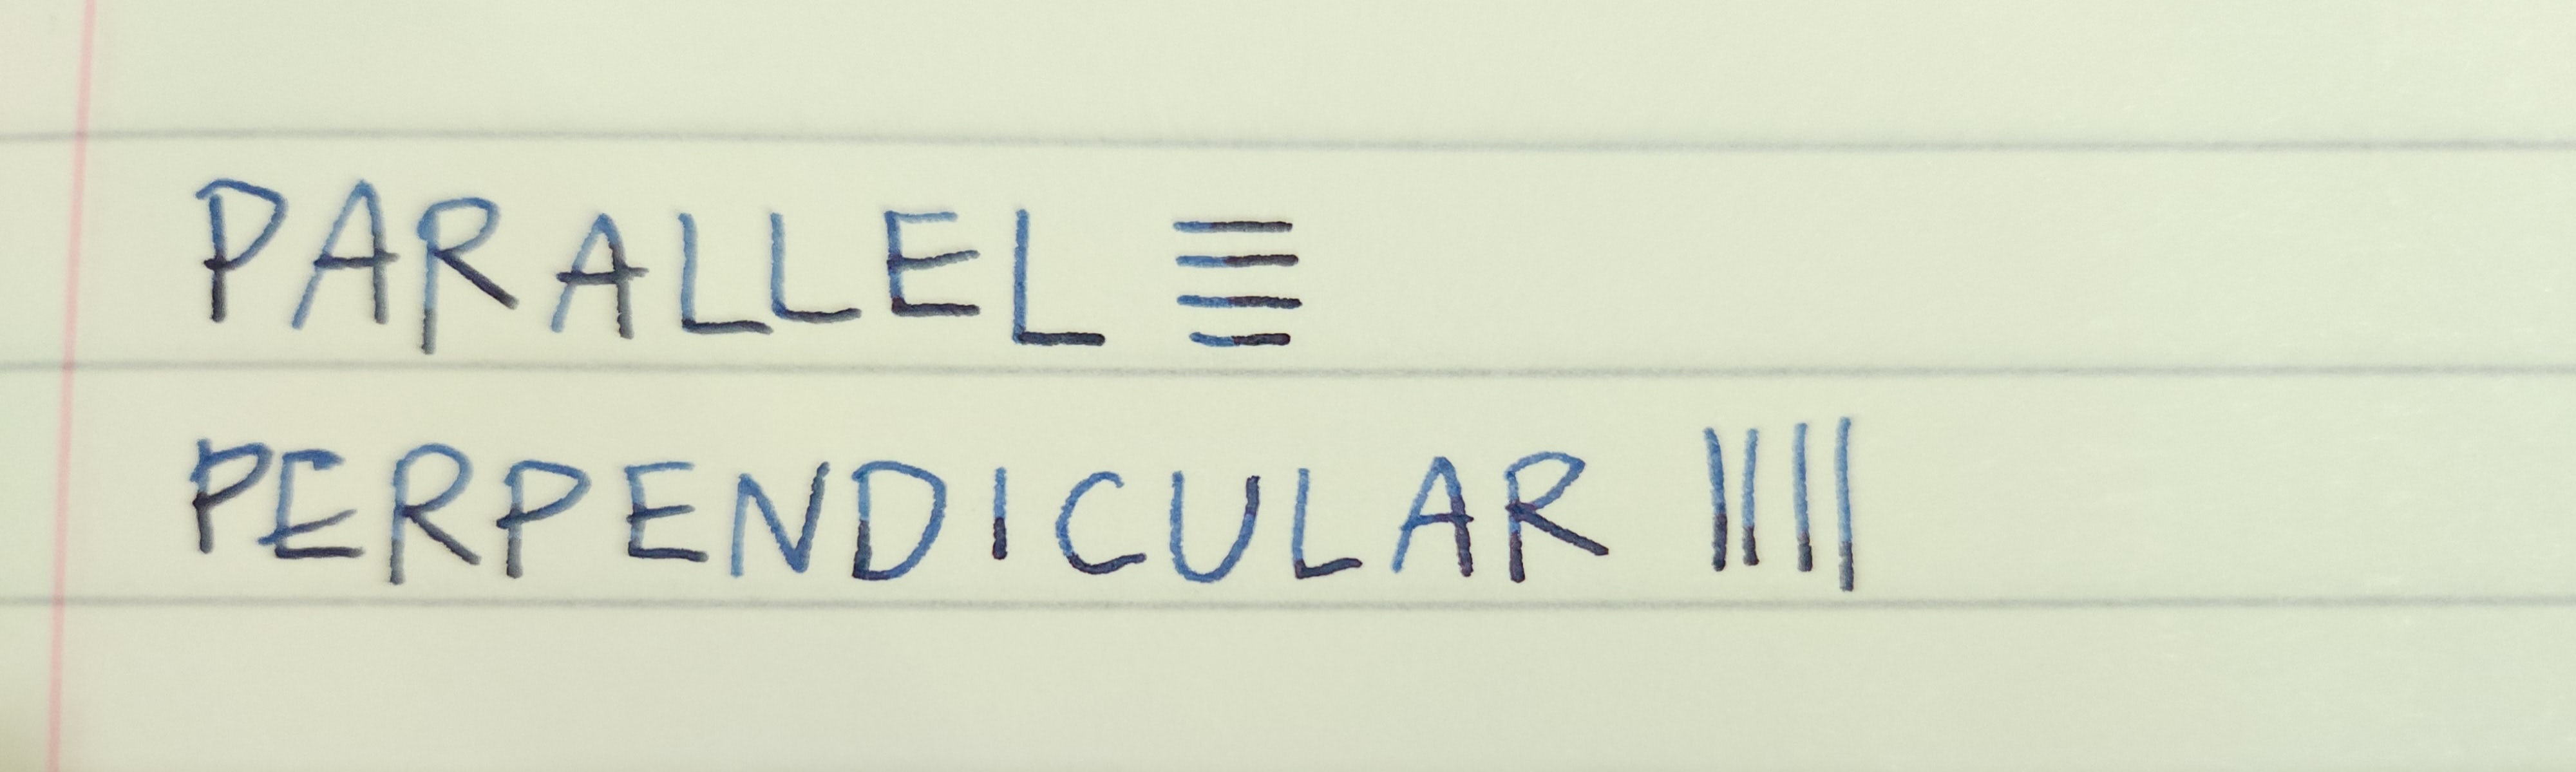 PARALLEL
PERPENDICULAR